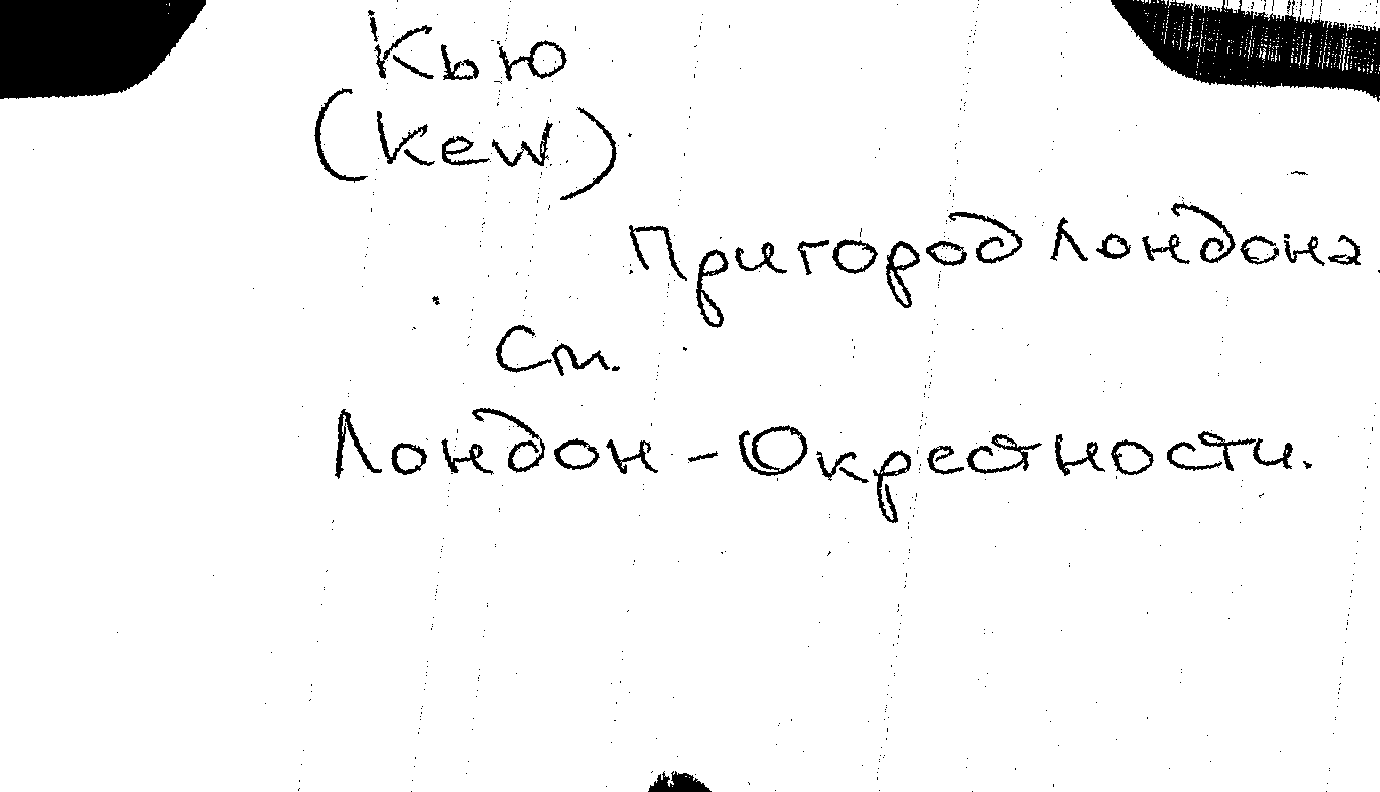 Кью
(Kew)
Пригород Лондона
См.
Лондон - Окрестности.